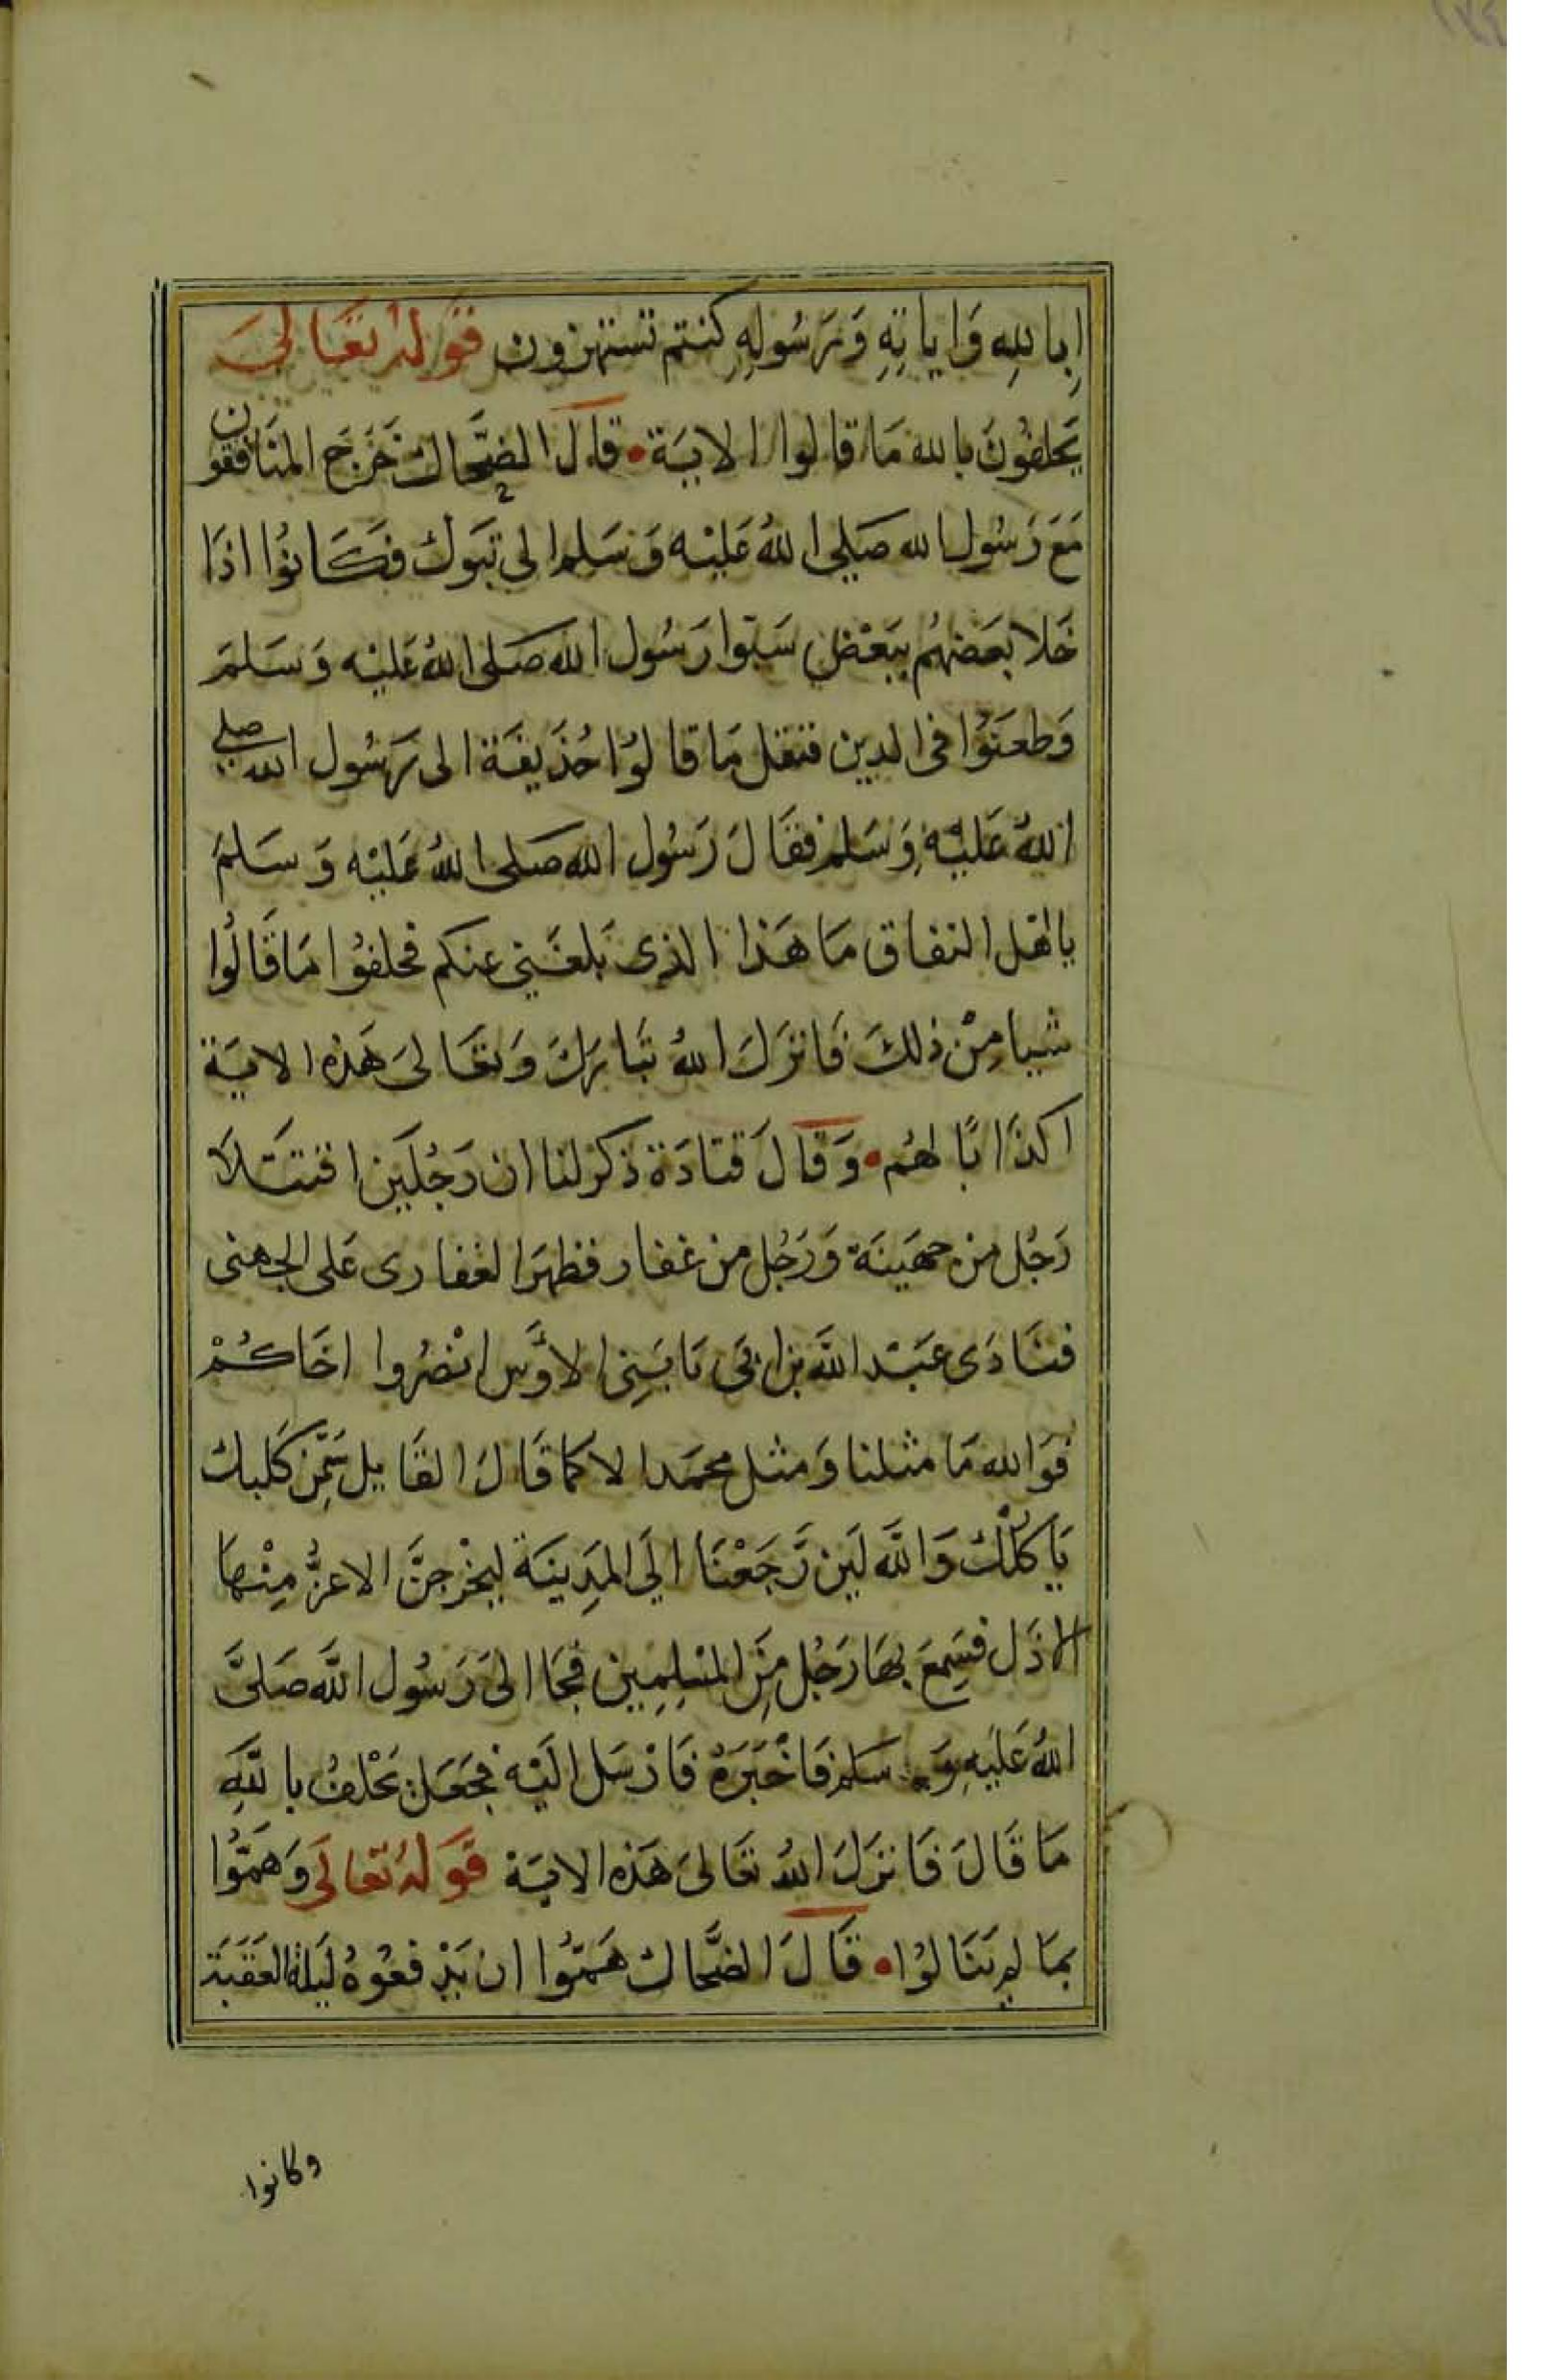 اِبالله وَاياتِهِ وَرَسُولِهِ كنتم تستهزون قَولهُ تعَالىَ
يَحلفُونَ بالله مَا قالوا الايَة • قاَل الضحَّاك خَرَجَ المنَافقون
مَعَ رَسُول الله صَلى اللهُ عَليْه وَسَلم الى تبَوك فكَانوُا اذَا
خَلا بعَضهُم ببَعْض سَبّوا رَسُول الله صَلى اللهُ عَليْه وَسَلمَ
وَطعَنوُا فى الدين فنقل مَا قالوُا حُذَيفَة الى رَسُول الله صلى
اللهُ عَليْهِ وَسَلم فقَالَ رَسُول الله صَلى اللهُ عَليْه وَسَلمَ
يا اهَل النفاق مَا هَذا الذى بَلغَنِي عنكم فحلفوُا مَا قَالوُا
شيا مِنْ ذلكَ فَانزَلَ اللهُ تبَارَكَ وَتعَالىَ هَذه الايَة
اكذَابًا لهُم • وَقالَ قتادَة ذكر لنا ان رَجُلَين اقتتَلاَ
رَجُل من جهَينَة وَرَجُل من غفار فظهَرَ الغفارى عَلى الجهنى
فنَادَى عَبَد اللَّه بن ابى يَا بَنِى الاوَّس انْصُروا اخَاكمُْ
فوَالله مَا مثلنا وَمثل محمَد الا كمَا قَالَ القَايل سَمِّن كَلبك
يَاكلْك وَاللَّه لَين رَّجَعْنَا الَي المَدِينَة ليخْرجَنَّ الاعزُّ مِنْهَا
الاذَل فسَمِعَ بهَا رَجُل مِنَ المسْلِمِين فجَا الىَ رَسُول اللَّه صَلىَّ
اللهُ عَليَهِ وَسَلم فَاخْبَرَهُ فَارْسَل الَيْه فجَعَل يَحْلفُ باللَّهِ
مَا قَالَ فَانزَلَ اللهُ تعَالىَ هَذه الايَة قَولهُ تعَالىَ وَهَمّوُا
بمَا لم يَنَالوُا • قَالَ الضحَّاك هَمّوُا ان يَدْفعُوهُ لَيلة العَقَبَة
وكانوا